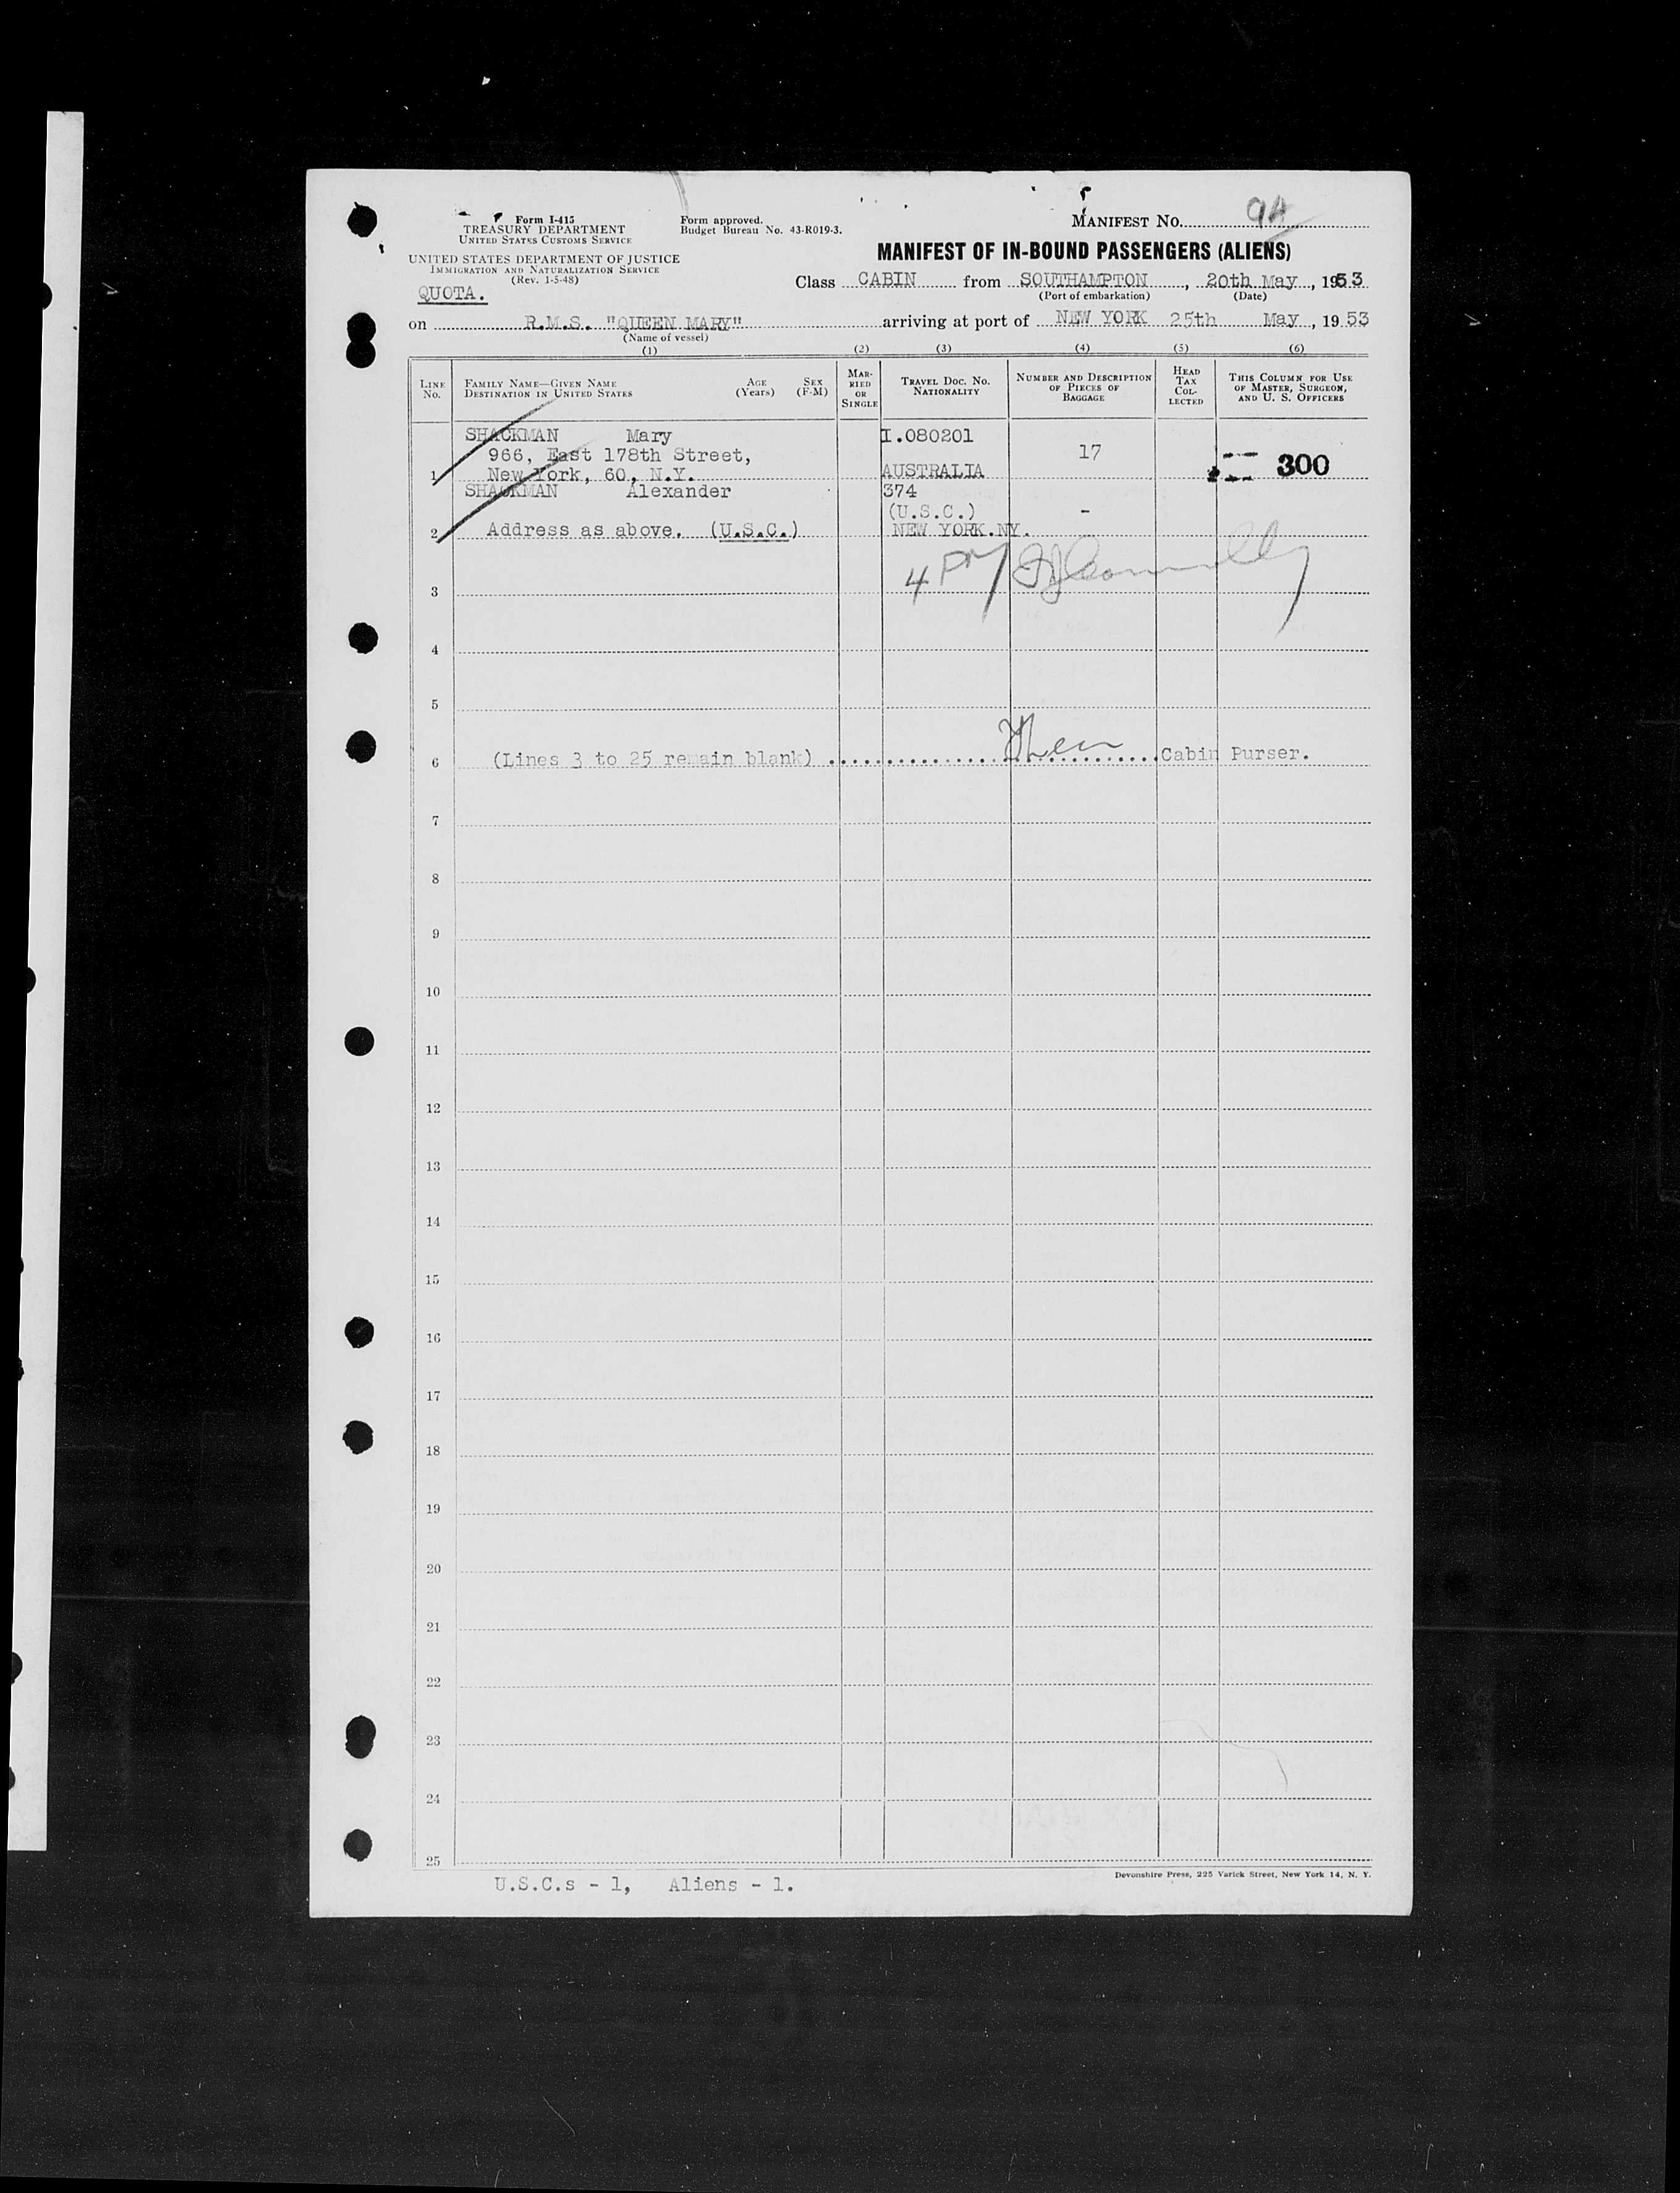 Form I-415
TREASURY DEPARTMENT
UNITED STATES CUSTOMS SERVICE
Form approved.
Budget Bureau No. 43-R019-3.
MANIFEST NO.
UNITED STATES DEPARTMENT OF JUSTICE
IMMIGRATION AND NATURALIZATION SERVICE
(Rev. 1-5-48)
QUOTA.
MANIFEST OF IN-BOUND PASSENGERS (ALIENS)
Class CABIN from SOUTHAMPTON, 20th May, 1953
(Port of embarkation) (Date)
on R.M.S. "QUEEN MARY" arriving at port of NEW YORK 25th May, 1953
(Name of vessel)
(1) (2) (3) (4) (5) (6)
LINE NO.
FAMILY NAME—GIVEN NAME
DESTINATION IN UNITED STATES
AGE (Years)
SEX (F-M)
MARRIED OR SINGLE
TRAVEL DOC. NO.
NATIONALITY
NUMBER AND DESCRIPTION OF PIECES OF BAGGAGE
HEAD TAX COLLECTED
THIS COLUMN FOR USE OF MASTER, SURGEON, AND U. S. OFFICERS
SHACKMAN Mary I.080201
966, East 178th Street, 17
1 New York, 60, N.Y. AUSTRALIA 300
SHACKMAN Alexander 374
(U.S.C.) -
2 Address as above. (U.S.C.) NEW YORK.NY.
4 PM
3
4
5
6 (Lines 3 to 25 remain blank) Cabin Purser.
7
8
9
10
11
12
13
14
15
16
17
18
19
20
21
22
23
24
25
Devonshire Press, 225 Varick Street, New York 14, N. Y.
U.S.C.s - 1, Aliens - 1.